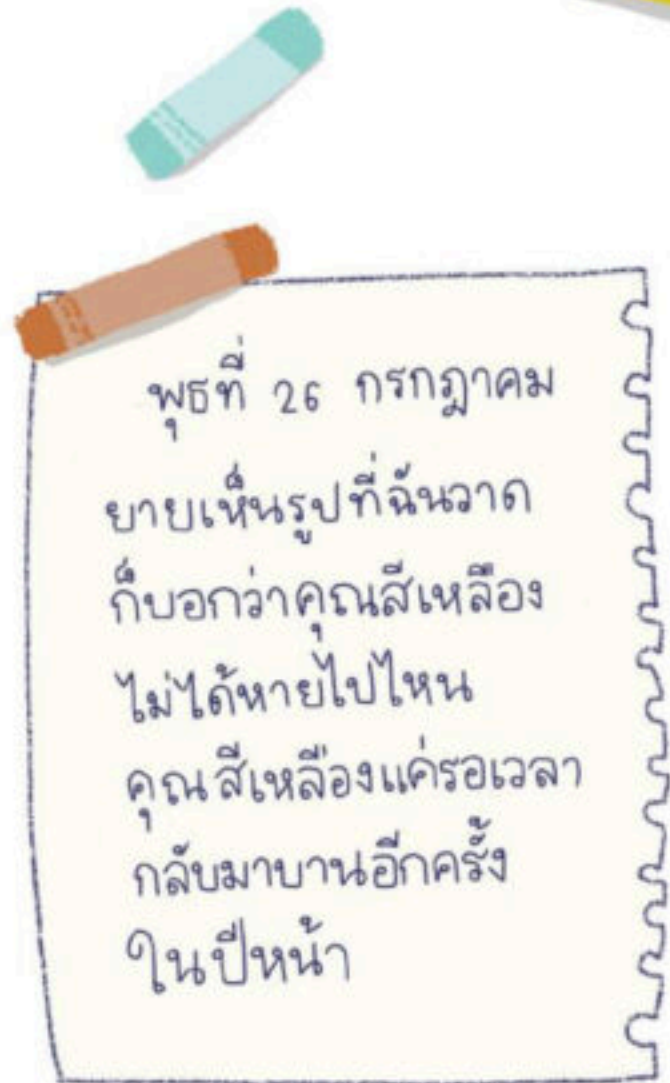 พุธที่ 26 กรกฎาคม
ยายเห็นรูปที่ฉันวาด
ก็บอกว่าคุณสีเหลือง
ไม่ได้หายไปไหน
คุณสีเหลืองแค่รอเวลา
กลับมาบานอีกครั้ง
ในปีหน้า